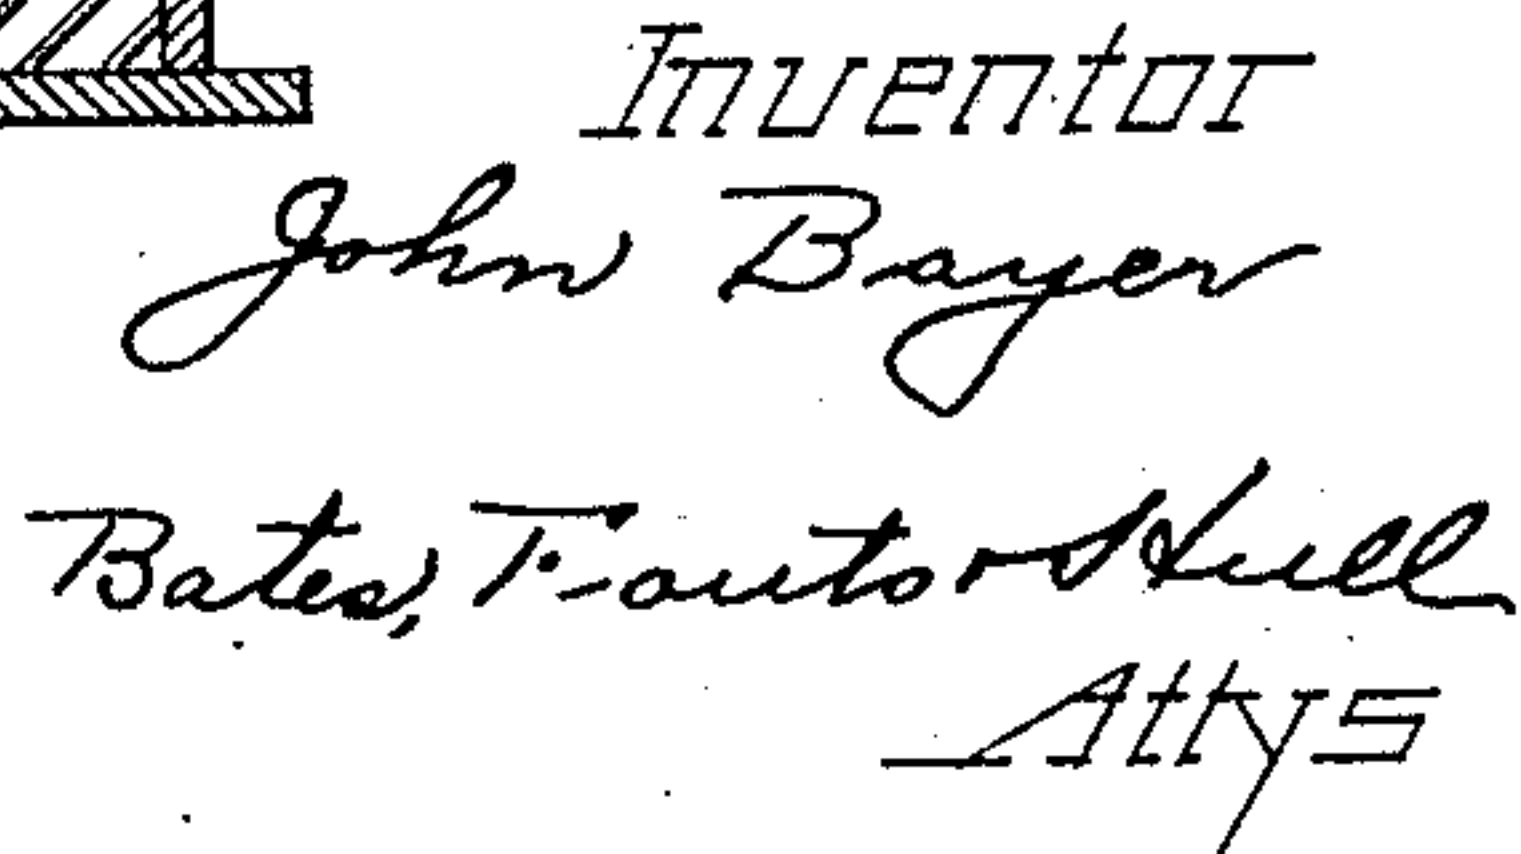 Inventor
John Bayer
Bates, Fouts & Hull
Attys